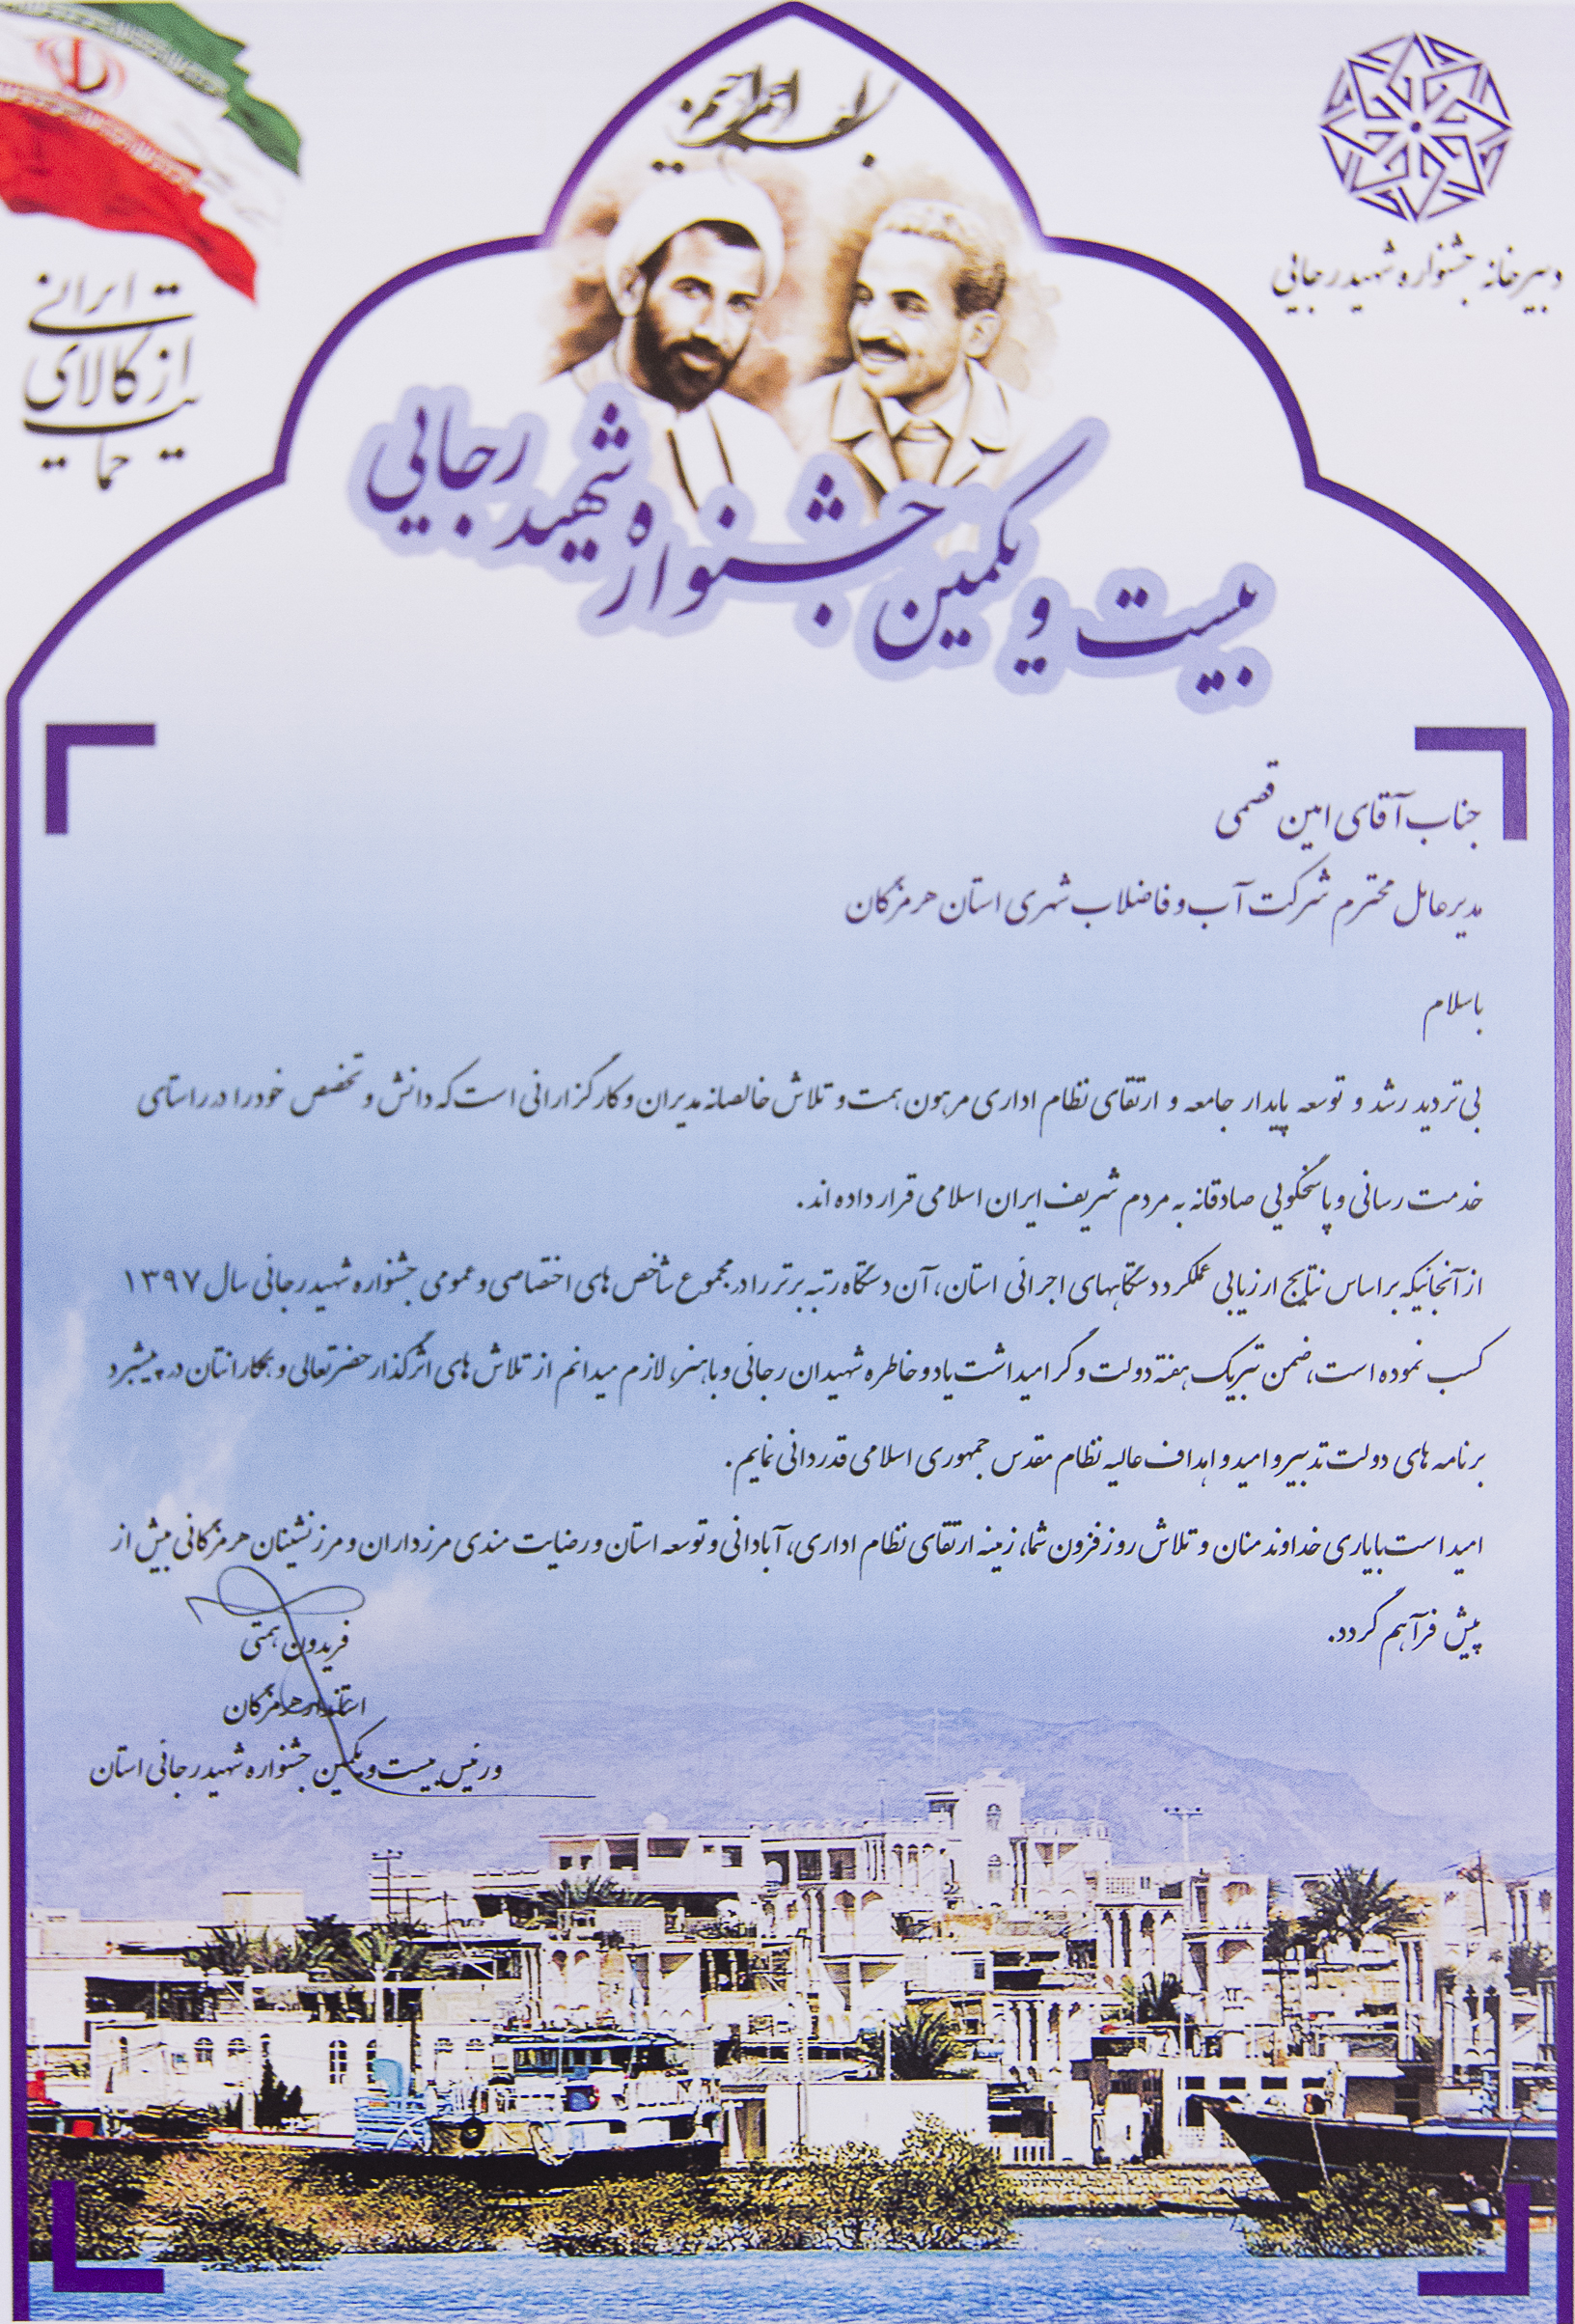 بسم الله الرحمن الرحیم
دبیرخانه جشنواره شهید رجائی
حمایت
از کالای
ایرانی
بیست و یکمین جشنواره شهید رجایی
جناب آقای امین قصمی
مدیرعامل محترم شرکت آب و فاضلاب شهری استان هرمزگان
باسلام
بی تردید رشد و توسعه پایدار جامعه و ارتقای نظام اداری مرهون همت و تلاش خالصانه مدیران و کارگزارانی است که دانش و تخصص خود را در راستای
خدمت رسانی و پاسخگویی صادقانه به مردم شریف ایران اسلامی قرار داده اند.
از آنجائیکه براساس نتایج ارزیابی عملکرد دستگاههای اجرائی استان، آن دستگاه رتبه برتر را در مجموع شاخص های اختصاصی و عمومی جشنواره شهید رجائی سال ۱۳۹۷
کسب نموده است، ضمن تبریک هفته دولت و گرامیداشت یاد و خاطره شهیدان رجائی و باهنر، لازم میدانم از تلاش های اثرگذار حضرتعالی و همکارانتان در پیشبرد
برنامه های دولت تدبیر و امید و اهداف عالیه نظام مقدس جمهوری اسلامی قدردانی نمایم.
امید است با یاری خداوند منان و تلاش روزفزون شما، زمینه ارتقای نظام اداری، آبادانی و توسعه استان و رضایت مندی مرزداران و مرزنشینان هرمزگانی بیش از
پیش فرآهم گردد.
فریدون همتی
استاندار هرمزگان
و رئیس بیست و یکمین جشنواره شهید رجائی استان